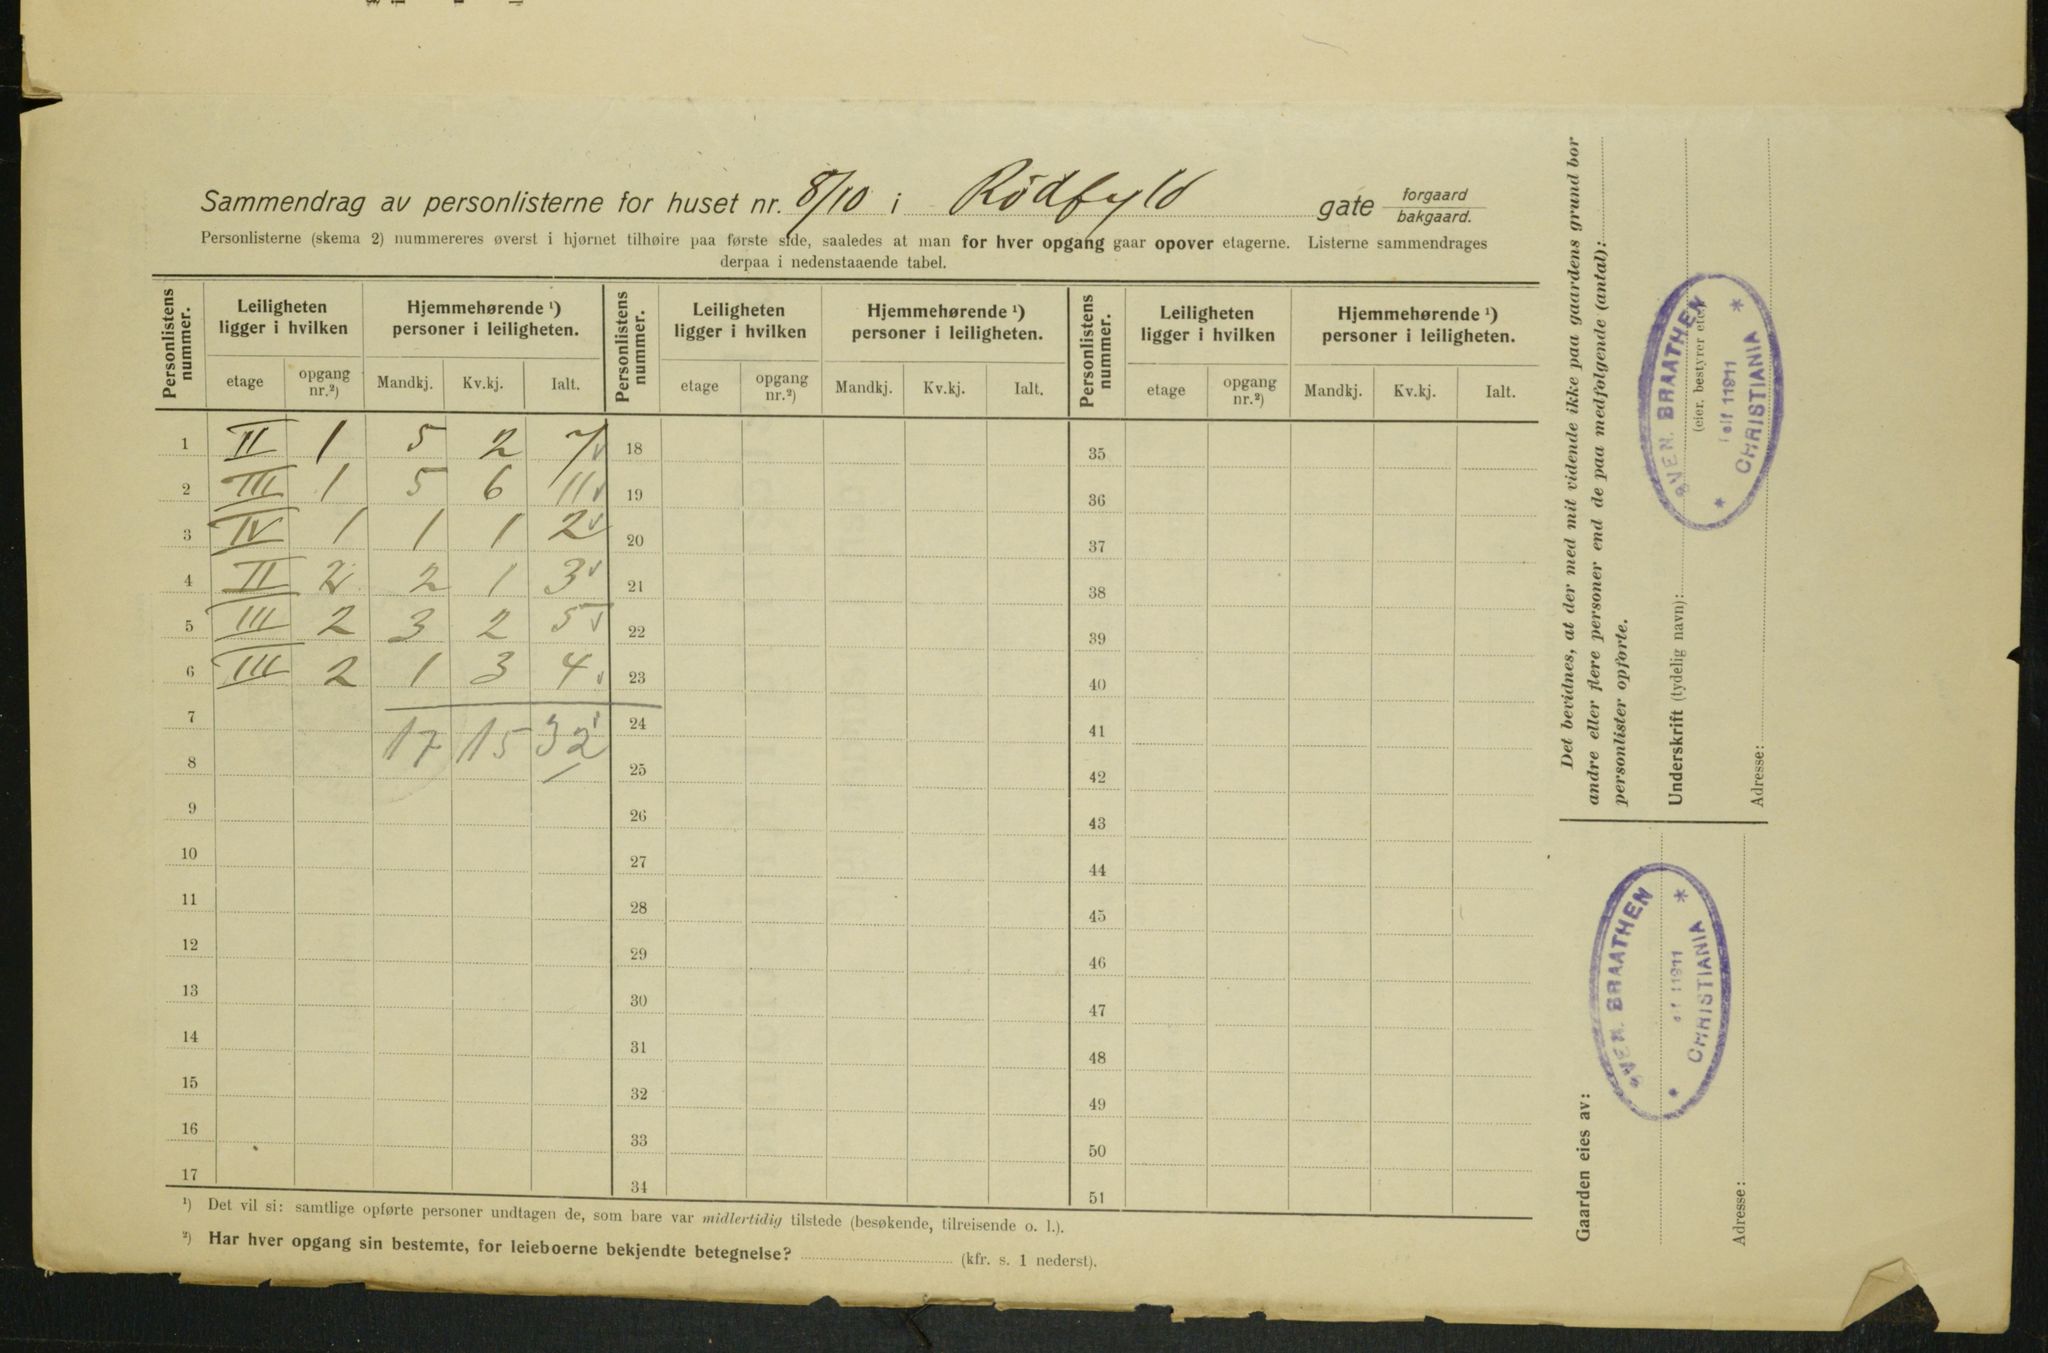 Sammendrag av personlisterne for huset nr. 8/10 i Rödfyld gate forgaard bakgaard.
Personlisterne (skema 2) nummereres øverst i hjørnet tilhøire paa første side, saaledes at man for hver opgang gaar opover etagerne. Listerne sammendrages
derpaa i nedenstaaende tabel.
Personlistens nummer. Leiligheten ligger i hvilken Hjemmehørende ¹) personer i leiligheten. Personlistens nummer. Leiligheten ligger i hvilken Hjemmehørende ¹) personer i leiligheten. Personlistens nummer. Leiligheten ligger i hvilken Hjemmehørende ¹) personer i leiligheten.
etage opgang nr.²) Mandkj. Kv.kj. Ialt. etage opgang nr.²) Mandkj. Kv.kj. Ialt. etage opgang nr.²) Mandkj. Kv.kj. Ialt.
1 II 1 5 2 7 18 35
2 III 1 5 6 11 19 36
3 IV 1 1 1 2 20 37
4 II 2 2 1 3 21 38
5 III 2 3 2 5 22 39
6 III 2 1 3 4 23 40
7 24 41
17 15 32
8 25 42
9 26 43
10 27 44
11 28 45
12 29 46
13 30 47
14 31 48
15 32 49
16 33 50
17 34 51
¹) Det vil si: samtlige opførte personer undtagen de, som bare var midlertidig tilstede (besøkende, tilreisende o. l.).
²) Har hver opgang sin bestemte, for leieboerne bekjendte betegnelse? (kfr. s. 1 nederst).
Det bevidnes, at der med mit vidende ikke paa gaardens grund bor
andre eller flere personer end de paa medfølgende (antal):
personlister opførte.
Underskrift (tydelig navn):
(eier, bestyrer etc.)
Adresse:
BRAATHEN
11911
CHRISTIANIA
Gaarden eies av:
Adresse:
BRAATHEN
11911
CHRISTIANIA